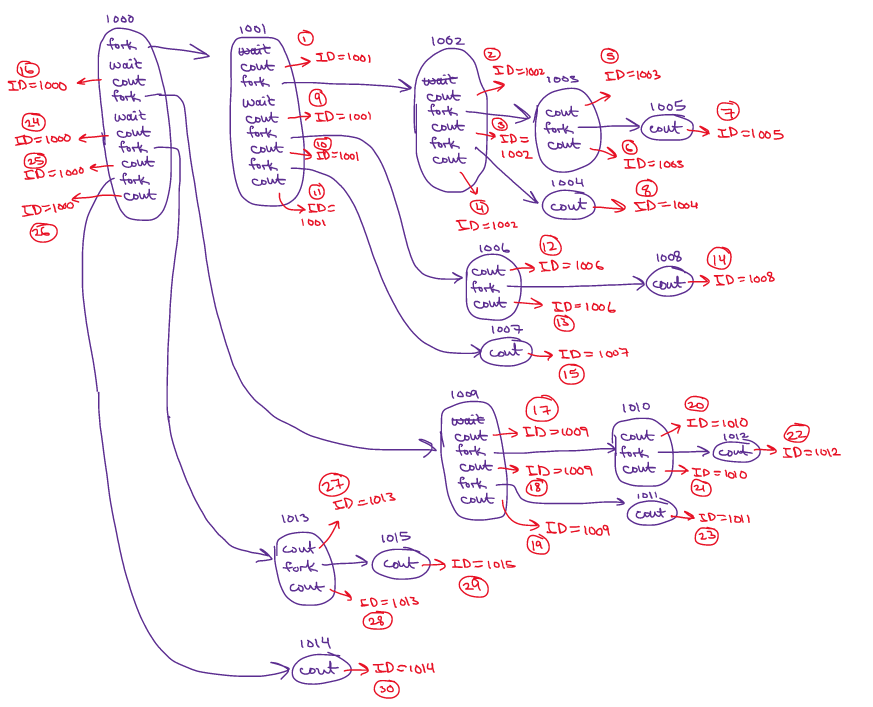 1000
fork
wait
cout
fork
wait
cout
fork
cout
fork
cout
16
ID=1000
24
ID=1000
25
ID=1000
ID=1000
26
1001
wait
cout
fork
wait
cout
fork
cout
fork
cout
1
ID=1001
9
ID=1001
10
ID=1001
11
ID=
1001
1002
wait
cout
fork
cout
fork
cout
2
ID=1002
3
ID=
1002
4
ID=1002
1003
cout
fork
cout
5
ID=1003
6
ID=1003
1005
cout
7
ID=1005
1004
cout
8
ID=1004
1006
cout
fork
cout
12
ID=1006
ID=1006
13
1008
cout
14
ID=1008
1007
cout
ID=1007
15
1009
wait
cout
fork
cout
fork
cout
17
ID=1009
ID=1009
18
ID=1009
19
1010
cout
fork
cout
20
ID=1010
ID=1010
21
1012
cout
22
ID=1012
1011
cout
ID=1011
23
1013
cout
fork
cout
27
ID=1013
ID=1013
28
1015
cout
ID=1015
29
1014
cout
ID=1014
30